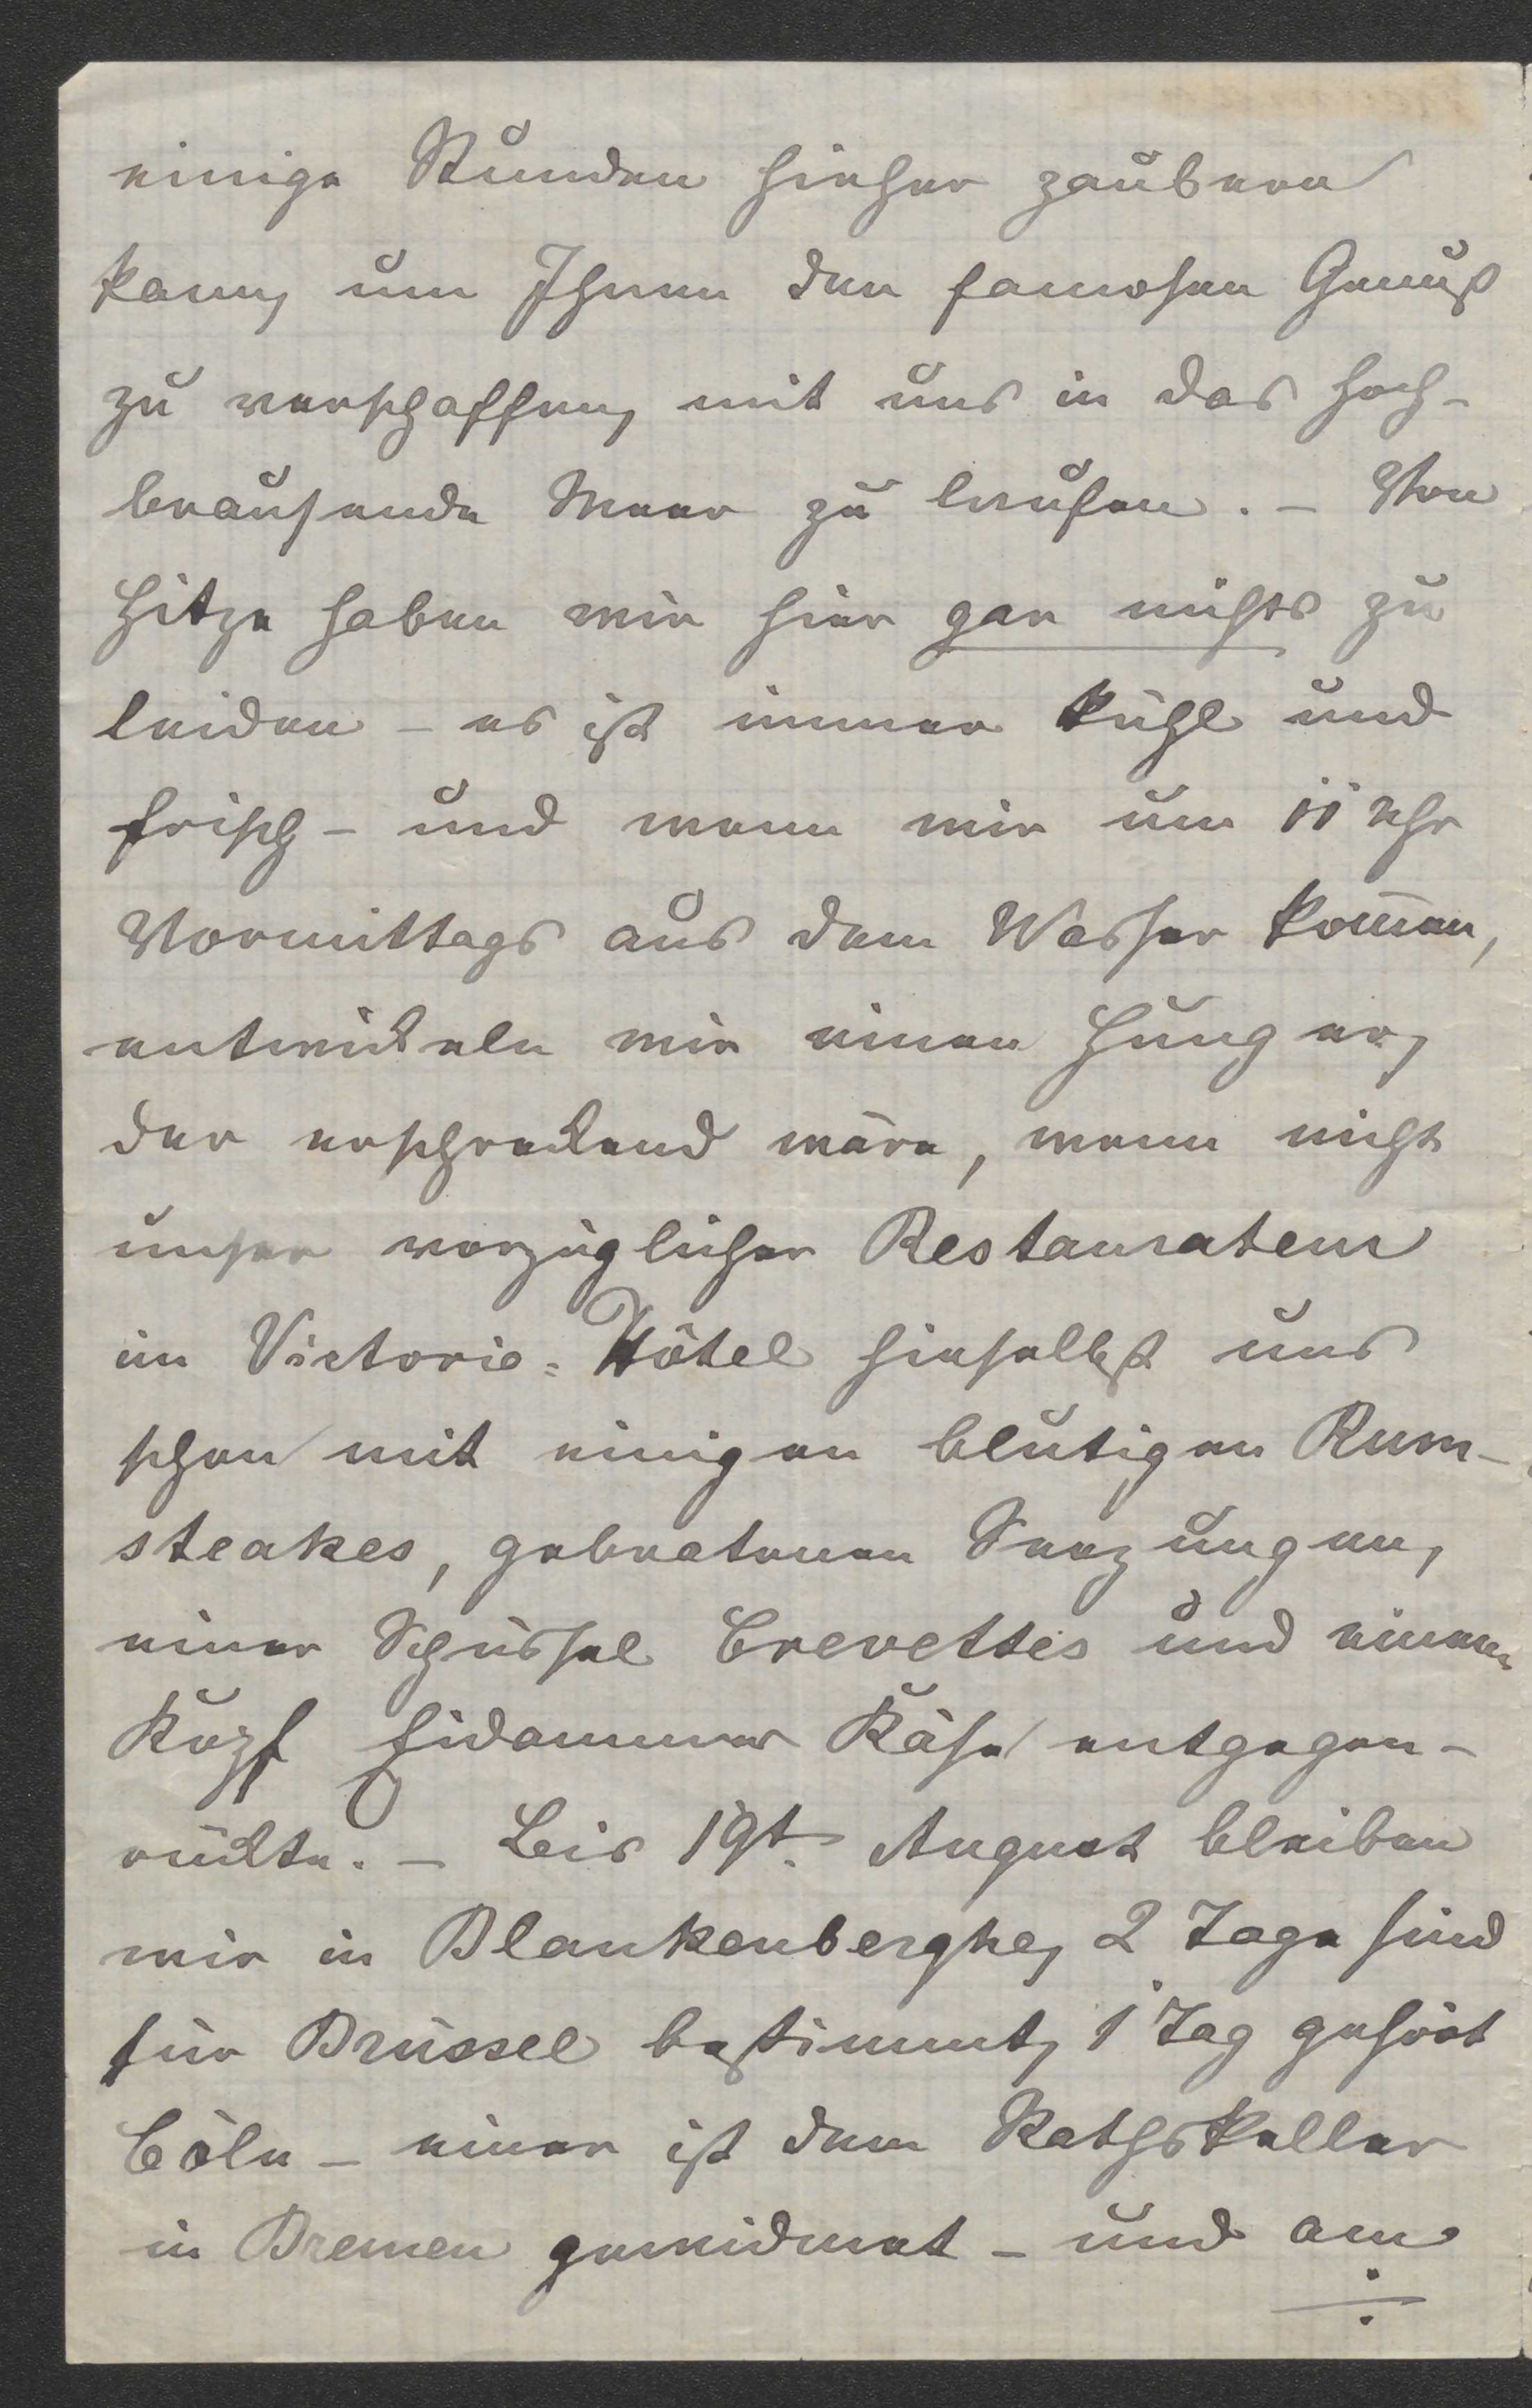 einige Stunden hieher zaubern
kann, um Ihnen den famosen Genuß
zu verschaffen, mit uns in das hoch-
brausende Meer zu laufen. – Von
Hitze haben wir hier gar nichts zu
leiden – es ist immer kühl und
frisch – und wenn wir um 11 Uhr
Vormittags aus dem Wasser kom̄en,
entwickeln wir einen Hunger,
der erschreckend wäre, wenn nicht
unser vorzüglicher Restaurateur
im Victoria-Hôtel hieselbst uns
schon mit einigen blutigen Rum-
steakes, gebratenen Seezungen,
einer Schüssel Crevettes und einem
Kopf Eidammer Käse entgegen-
rückte. – Bis 19t. August bleiben
wir in Blankenberghe, 2 Tage sind
für Brüssel bestimmt, 1 Tag gehört
Cöln – einer ist dem Rathskeller
in Bremen gewidmet – und am